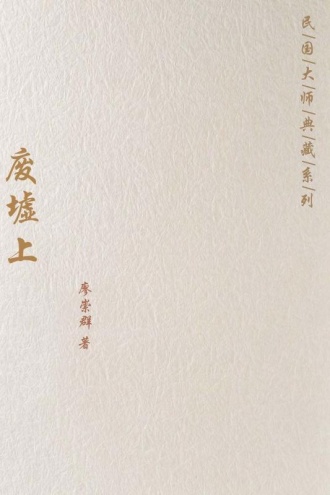 民国大师典藏系列
废墟上
廖崇群 著